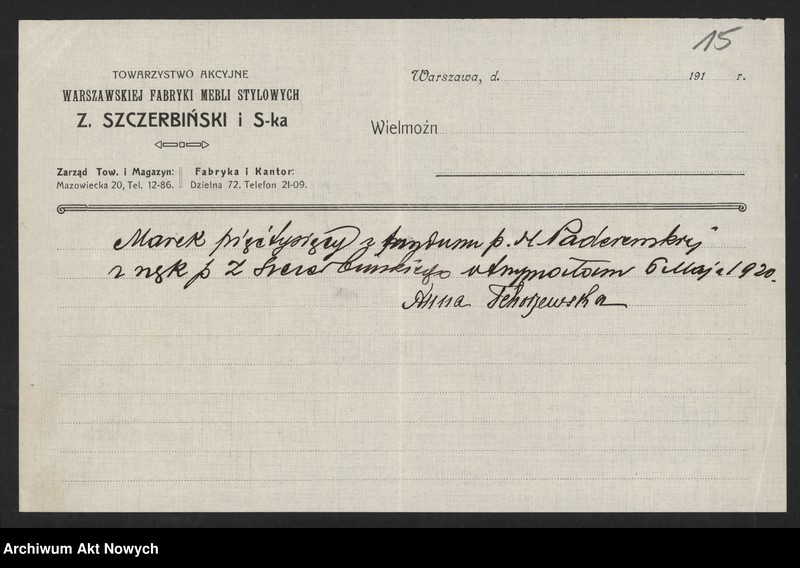 15
TOWARZYSTWO AKCYJNE
WARSZAWSKIEJ FABRYKI MEBLI STYLOWYCH
Z. SZCZERBIŃSKI i S-ka
Warszawa, d. 191 r.
Wielmożn
Zarząd Tow. i Magazyn:
Mazowiecka 20, Tel. 12-86.
Fabryka i Kantor:
Dzielna 72, Telefon 21-09.
Marek pięćtysięcy z funduszu p. H. Paderewskiej
z rąk p Z Szczerbińskiego otrzymałam 6 Maja 1920.
Anna Tchorzewska
Archiwum Akt Nowych